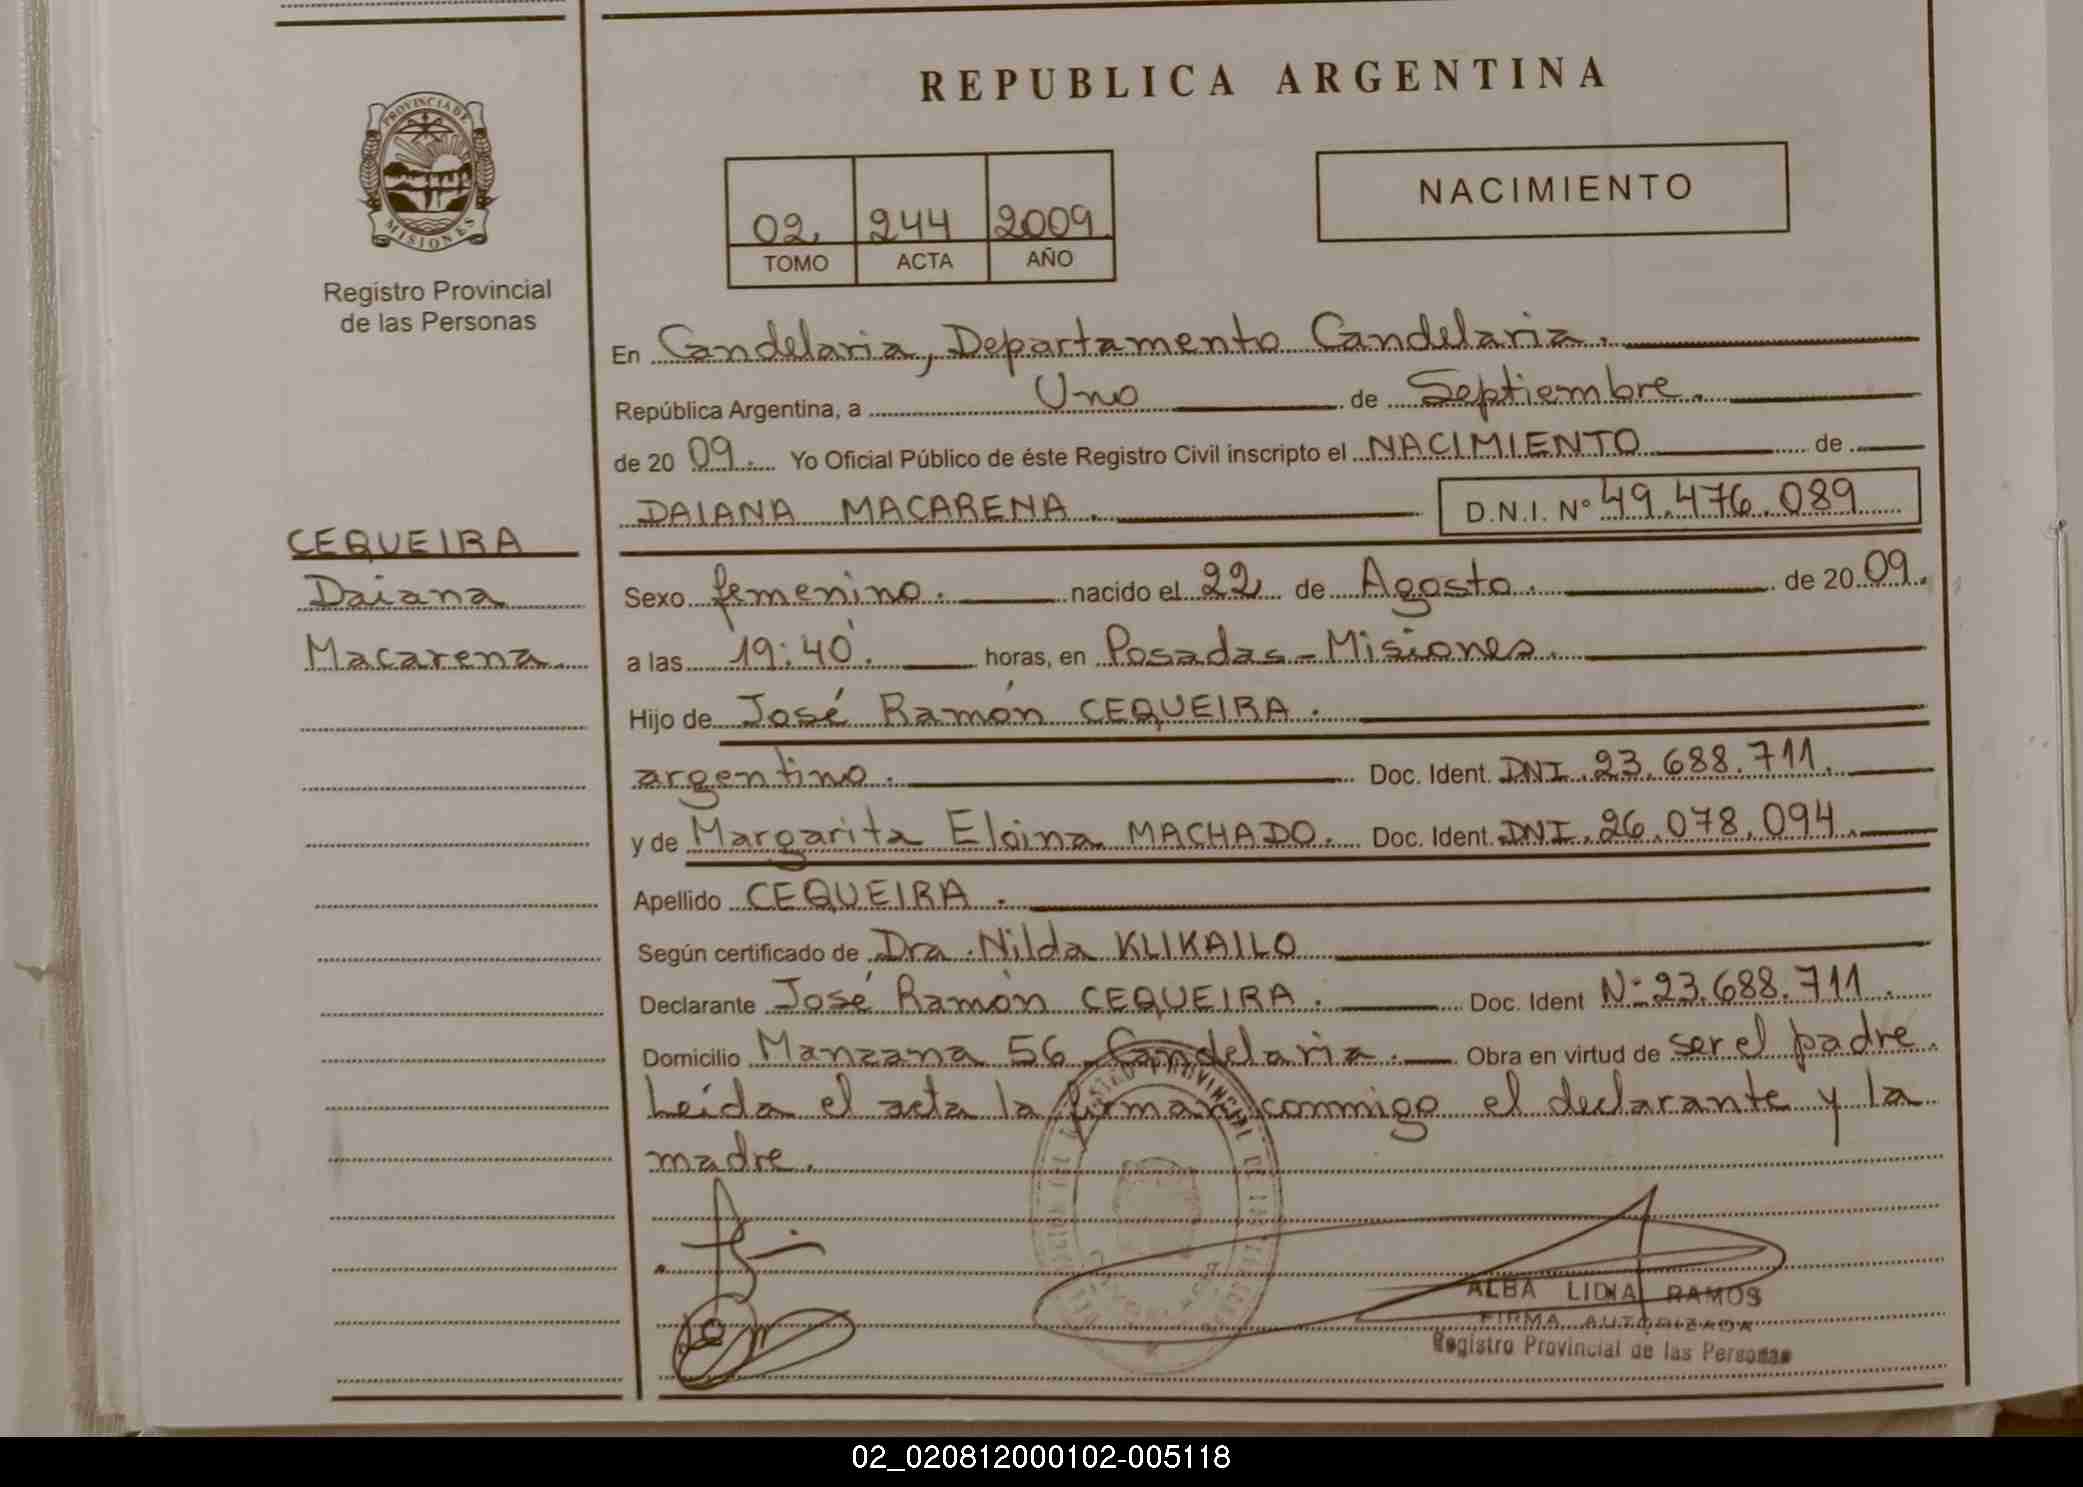 PROVINCIA DE
MISIONES
Registro Provincial
de las Personas
CEQUEIRA
Daiana
Macarena
REPUBLICA ARGENTINA
02 244 2009
TOMO ACTA AÑO
NACIMIENTO
En Candelaria, Departamento Candelaria.
República Argentina, a Uno de Septiembre.
de 20 09. Yo Oficial Público de éste Registro Civil inscripto el NACIMIENTO de
DAIANA MACARENA. D.N.I. Nº 49.476.089
Sexo femenino. nacido el 22 de Agosto. de 20 09.
a las 19:40'. horas, en Posadas-Misiones.
Hijo de José Ramón CEQUEIRA.
argentino. Doc. Ident. DNI. 23.688.711.
y de Margarita Eloina MACHADO. Doc. Ident. DNI. 26.078.094.
Apellido CEQUEIRA.
Según certificado de Dra. Nilda KLIKAILO
Declarante José Ramón CEQUEIRA. Doc. Ident Nº 23.688.711.
Domicilio Manzana 56 - Candelaria. Obra en virtud de ser el padre.
Leída el acta la firman conmigo el declarante y la
madre.
ALBA LIDIA RAMOS
FIRMA AUTORIZADA
Registro Provincial de las Personas
02_020812000102-005118